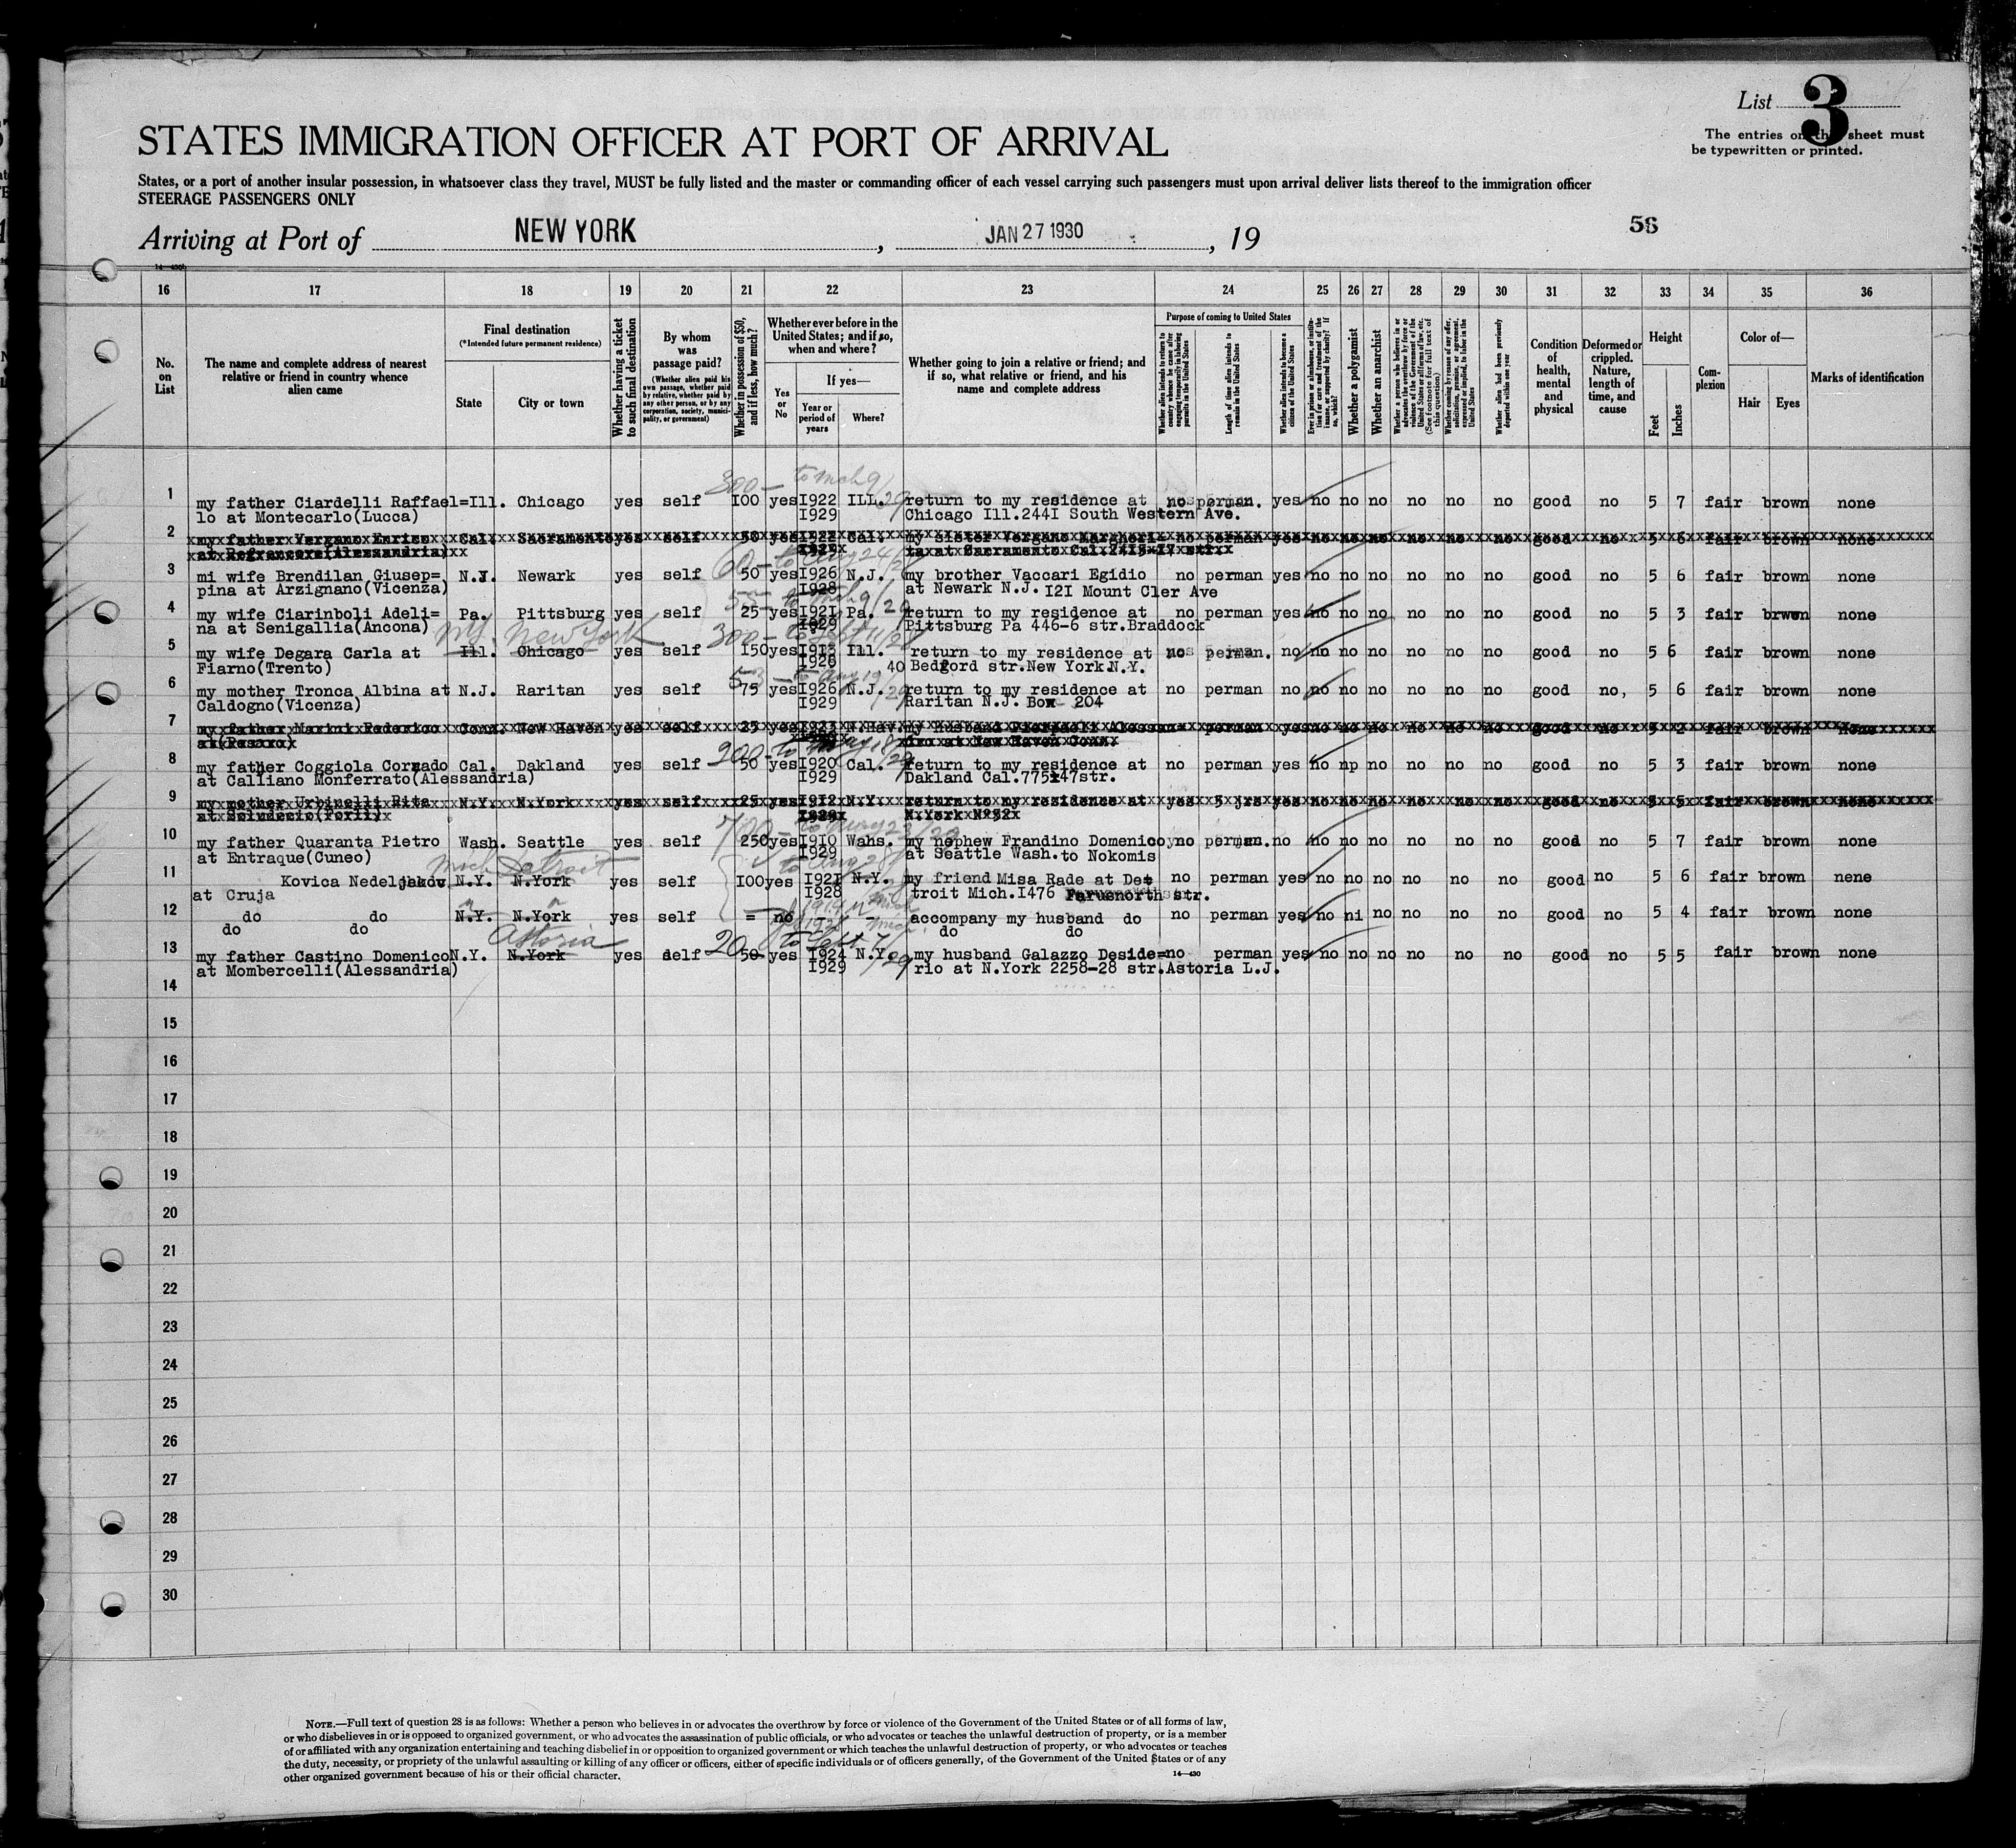 List 3
The entries on this sheet must
be typewritten or printed.
STATES IMMIGRATION OFFICER AT PORT OF ARRIVAL
States, or a port of another insular possession, in whatsoever class they travel, MUST be fully listed and the master or commanding officer of each vessel carrying such passengers must upon arrival deliver lists thereof to the immigration officer
STEERAGE PASSENGERS ONLY
Arriving at Port of NEW YORK, JAN 27 1930, 19
56
16 17 18 19 20 21 22 23 24 25 26 27 28 29 30 31 32 33 34 35 36
No. on List
The name and complete address of nearest relative or friend in country whence alien came
Final destination
(*Intended future permanent residence)
State
City or town
Whether having a ticket to such final destination
By whom was passage paid?
(Whether alien paid his own passage, whether paid by relative, whether paid by any other person, or by any corporation, society, municipality, or government)
Whether in possession of $50, and if less, how much?
Whether ever before in the United States; and if so, when and where?
Yes or No
If yes—
Year or period of years
Where?
Whether going to join a relative or friend; and if so, what relative or friend, and his name and complete address
Purpose of coming to United States
Whether alien intends to return to country whence he came after engaging temporarily in laboring pursuits in the United States
Length of time alien intends to remain in the United States
Whether alien intends to become a citizen of the United States
Ever in prison or almshouse, or institution for care and treatment of the insane, or supported by charity? If so, which?
Whether a polygamist
Whether an anarchist
Whether a person who believes in or advocates the overthrow by force or violence of the Government of the United States or all forms of law, etc. (See footnote for full text of this question)
Whether coming by reason of any offer, solicitation, promise, or agreement, expressed or implied, to labor in the United States
Whether alien had been previously deported within one year
Condition of health, mental and physical
Deformed or crippled. Nature, length of time, and cause
Height
Feet
Inches
Complexion
Color of—
Hair
Eyes
Marks of identification
300 — to mch 9/29
1 my father Ciardelli Raffael= Ill. Chicago yes self I00 yes I922 ILL. return to my residence at no perman. yes no no no no no no good no 5 7 fair brown none
lo at Montecarlo(Lucca) I929 Chicago Ill.244I South Western Ave.
2 my father Vergano Enrico Cal. Sacramento yes self 50 yes I922 Cal. my sister Vergano Margheri= no perman yes no no no no no no good no 5 6 fair brown none
at Refrancore(Alessandria) ta at Sacramento Cal.
3 mi wife Brendilan Giusep= N.J. Newark yes self 50 yes I926 N.J. my brother Vaccari Egidio no perman yes no no no no no no good no 5 6 fair brown none
pina at Arzignano(Vicenza) I928 at Newark N.J. I2I Mount Cler Ave
4 my wife Ciarinboli Adeli= Pa. Pittsburg yes self 25 yes I92I Pa. return to my residence at no perman yes no no no no no no good no 5 3 fair brwen none
na at Senigallia(Ancona) I929 Pittsburg Pa 446-6 str.Braddock
NY. New York 300 —
5 my wife Degara Carla at Ill. Chicago yes self I50 yes I9I3 Ill. return to my residence at no perman. no no no no no no no good no 5 6 fair brown none
Fiarno(Trento) 40 Bedford str.New York N.Y.
6 my mother Tronca Albina at N.J. Raritan yes self 75 yes I926 N.J. return to my residence at no perman no no no no no no no good no, 5 6 fair brown none
Caldogno(Vicenza) I929 Raritan N.J. Box 204
7 my father Marini Federico Conn. New Haven yes self 25 yes I923 N.Hav. my husband Pierpaoli Alessan= perman yes no no no no no no good no 5 2 fair brown none
at(Pesaro) dro at New Haven Conn.
200 —
8 my father Coggiola Corrado Cal. Dakland yes self 50 yes I920 Cal. return to my residence at no perman yes no np no no no no good no 5 3 fair brown none
at Calliano Monferrato(Alessandria) I929 Dakland Cal.775 47str.
9 my mother Urbinelli Rita N.Y. N.York yes self 25 yes I9I2 N.Y. return to my residence at yes 5 yrs yes no no no no no no good no 5 5 fair brown none
N.York
700 —
10 my father Quaranta Pietro Wash. Seattle yes self 250 yes I9I0 Wahs. my nephew Frandino Domenico no perman. no no no no no no no good no 5 7 fair brown none
at Entraque(Cuneo) I929 at Seattle Wash. to Nokomis
Mich Detroit
11 Kovica Nedeljakov N.Y. N.York yes self I00 yes I92I N.Y. my friend Misa Rade at De= no perman yes no no no no no no good no 5 6 fair brown nene
at Cruja I928 troit Mich.I476 Farusnorth str.
12 do do N.Y. N.York yes self = no - - accompany my husband do no perman yes no ni no no no no good no 5 4 fair brown none
do do do do
Astoria 20
13 my father Castino Domenico N.Y. N.York yes delf 50 yes I924 N.Y. my husband Galazzo Deside= no perman yes no no no no no no good no 5 5 fair brown none
at Mombercelli(Alessandria) I929 rio at N.York 2258-28 str.Astoria L.J.
14
15
16
17
18
19
20
21
22
23
24
25
26
27
28
29
30
NOTE.—Full text of question 28 is as follows: Whether a person who believes in or advocates the overthrow by force or violence of the Government of the United States or of all forms of law,
or who disbelieves in or is opposed to organized government, or who advocates the assassination of public officials, or who advocates or teaches the unlawful destruction of property, or is a member
of or affiliated with any organization entertaining and teaching disbelief in or opposition to organized government or which teaches the unlawful destruction of property, or who advocates or teaches
the duty, necessity, or propriety of the unlawful assaulting or killing of any officer or officers, either of specific individuals or of officers generally, of the Government of the United States or of any
other organized government because of his or their official character.
14—430